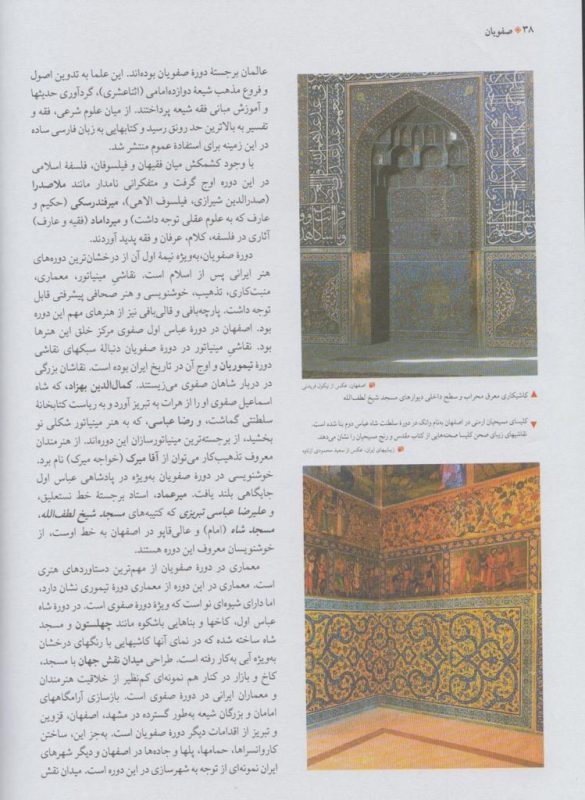 ۳۸ صفویان
عالمان برجستهٔ دورهٔ صفویان بوده‌اند. این علما به تدوین اصول
و فروع مذهب شیعهٔ دوازده‌امامی (اثناعشری)، گردآوری حدیثها
و آموزش مبانی فقه شیعه پرداختند. از میان علوم شرعی، فقه و
تفسیر به بالاترین حد رونق رسید و کتابهایی به زبان فارسی ساده
در این زمینه برای استفادهٔ عموم منتشر شد.
با وجود کشمکش میان فقیهان و فیلسوفان، فلسفهٔ اسلامی
در این دوره اوج گرفت و متفکرانی نامدار مانند ملاصدرا
(صدرالدین شیرازی، فیلسوف الاهی)، میرفندرسکی (حکیم و
عارف که به علوم عقلی توجه داشت) و میرداماد (فقیه و عارف)
آثاری در فلسفه، کلام، عرفان و فقه پدید آوردند.
دورهٔ صفویان، به‌ویژه نیمهٔ اول آن از درخشان‌ترین دوره‌های
هنر ایرانی پس از اسلام است. نقاشیِ مینیاتور، معماری،
منبت‌کاری، تذهیب، خوشنویسی و هنر صحافی پیشرفتی قابل
توجه داشت. پارچه‌بافی و قالی‌بافی نیز از هنرهای مهم این دوره
بود. اصفهان در دورهٔ عباس اول صفوی مرکز خلق این هنرها
بود. نقاشیِ مینیاتور در دورهٔ صفویان دنبالهٔ سبکهای نقاشی
دورهٔ تیموریان و اوج آن در تاریخ ایران بوده است. نقاشان بزرگی
در دربار شاهان صفوی می‌زیستند. کمال‌الدین بهزاد، که شاه
اسماعیل صفوی او را از هرات به تبریز آورد و به ریاست کتابخانهٔ
سلطنتی گماشت، و رضا عباسی، که به هنر مینیاتور شکلی نو
بخشید، از برجسته‌ترین مینیاتورسازان این دوره‌اند. از هنرمندان
معروف تذهیب‌کار می‌توان از آقا میرک (خواجه میرک) نام برد.
خوشنویسی در دورهٔ صفویان به‌ویژه در پادشاهی عباس اول
جایگاهی بلند یافت. میرعماد، استاد برجستهٔ خط نستعلیق،
و علیرضا عباسی تبریزی که کتیبه‌های مسجد شیخ لطف‌الله،
مسجد شاه (امام) و عالی‌قاپو در اصفهان به خط اوست، از
خوشنویسان معروف این دوره هستند.
معماری در دورهٔ صفویان از مهم‌ترین دستاوردهای هنری
است. معماری در این دوره از معماری دورهٔ تیموری نشان دارد،
اما دارای شیوه‌ای نو است که ویژهٔ دورهٔ صفوی است. در دورهٔ شاه
عباس اول، کاخها و بناهایی باشکوه مانند چهلستون و مسجد
شاه ساخته شده که در نمای آنها کاشیهایی با رنگهای درخشان
به‌ویژه آبی به‌کار رفته است. طراحی میدان نقش جهان با مسجد،
کاخ و بازار در کنار هم نمونه‌ای کم‌نظیر از خلاقیت هنرمندان
و معماران ایرانی در دورهٔ صفوی است. بازسازی آرامگاههای
امامان و بزرگان شیعه به‌طور گسترده در مشهد، اصفهان، قزوین
و تبریز از اقدامات دیگر دورهٔ صفویان است. به‌جز این، ساختن
کاروانسراها، حمامها، پلها و جاده‌ها در اصفهان و دیگر شهرهای
ایران نمونه‌ای از توجه به شهرسازی در این دوره است. میدان نقش
اصفهان، عکس از نیکول فریدنی
کاشیکاری معرق محراب و سطح داخلی دیوارهای مسجد شیخ لطف‌الله
کلیسای مسیحیان ارمنی در اصفهان به‌نام وانک در دورهٔ سلطنت شاه عباس دوم بنا شده است.
نقاشیهای زیبای صحن کلیسا صحنه‌هایی از کتاب مقدس و رنج مسیحیان را نشان می‌دهد.
زیباییهای ایران، عکس از سعید محمودی ازناوه